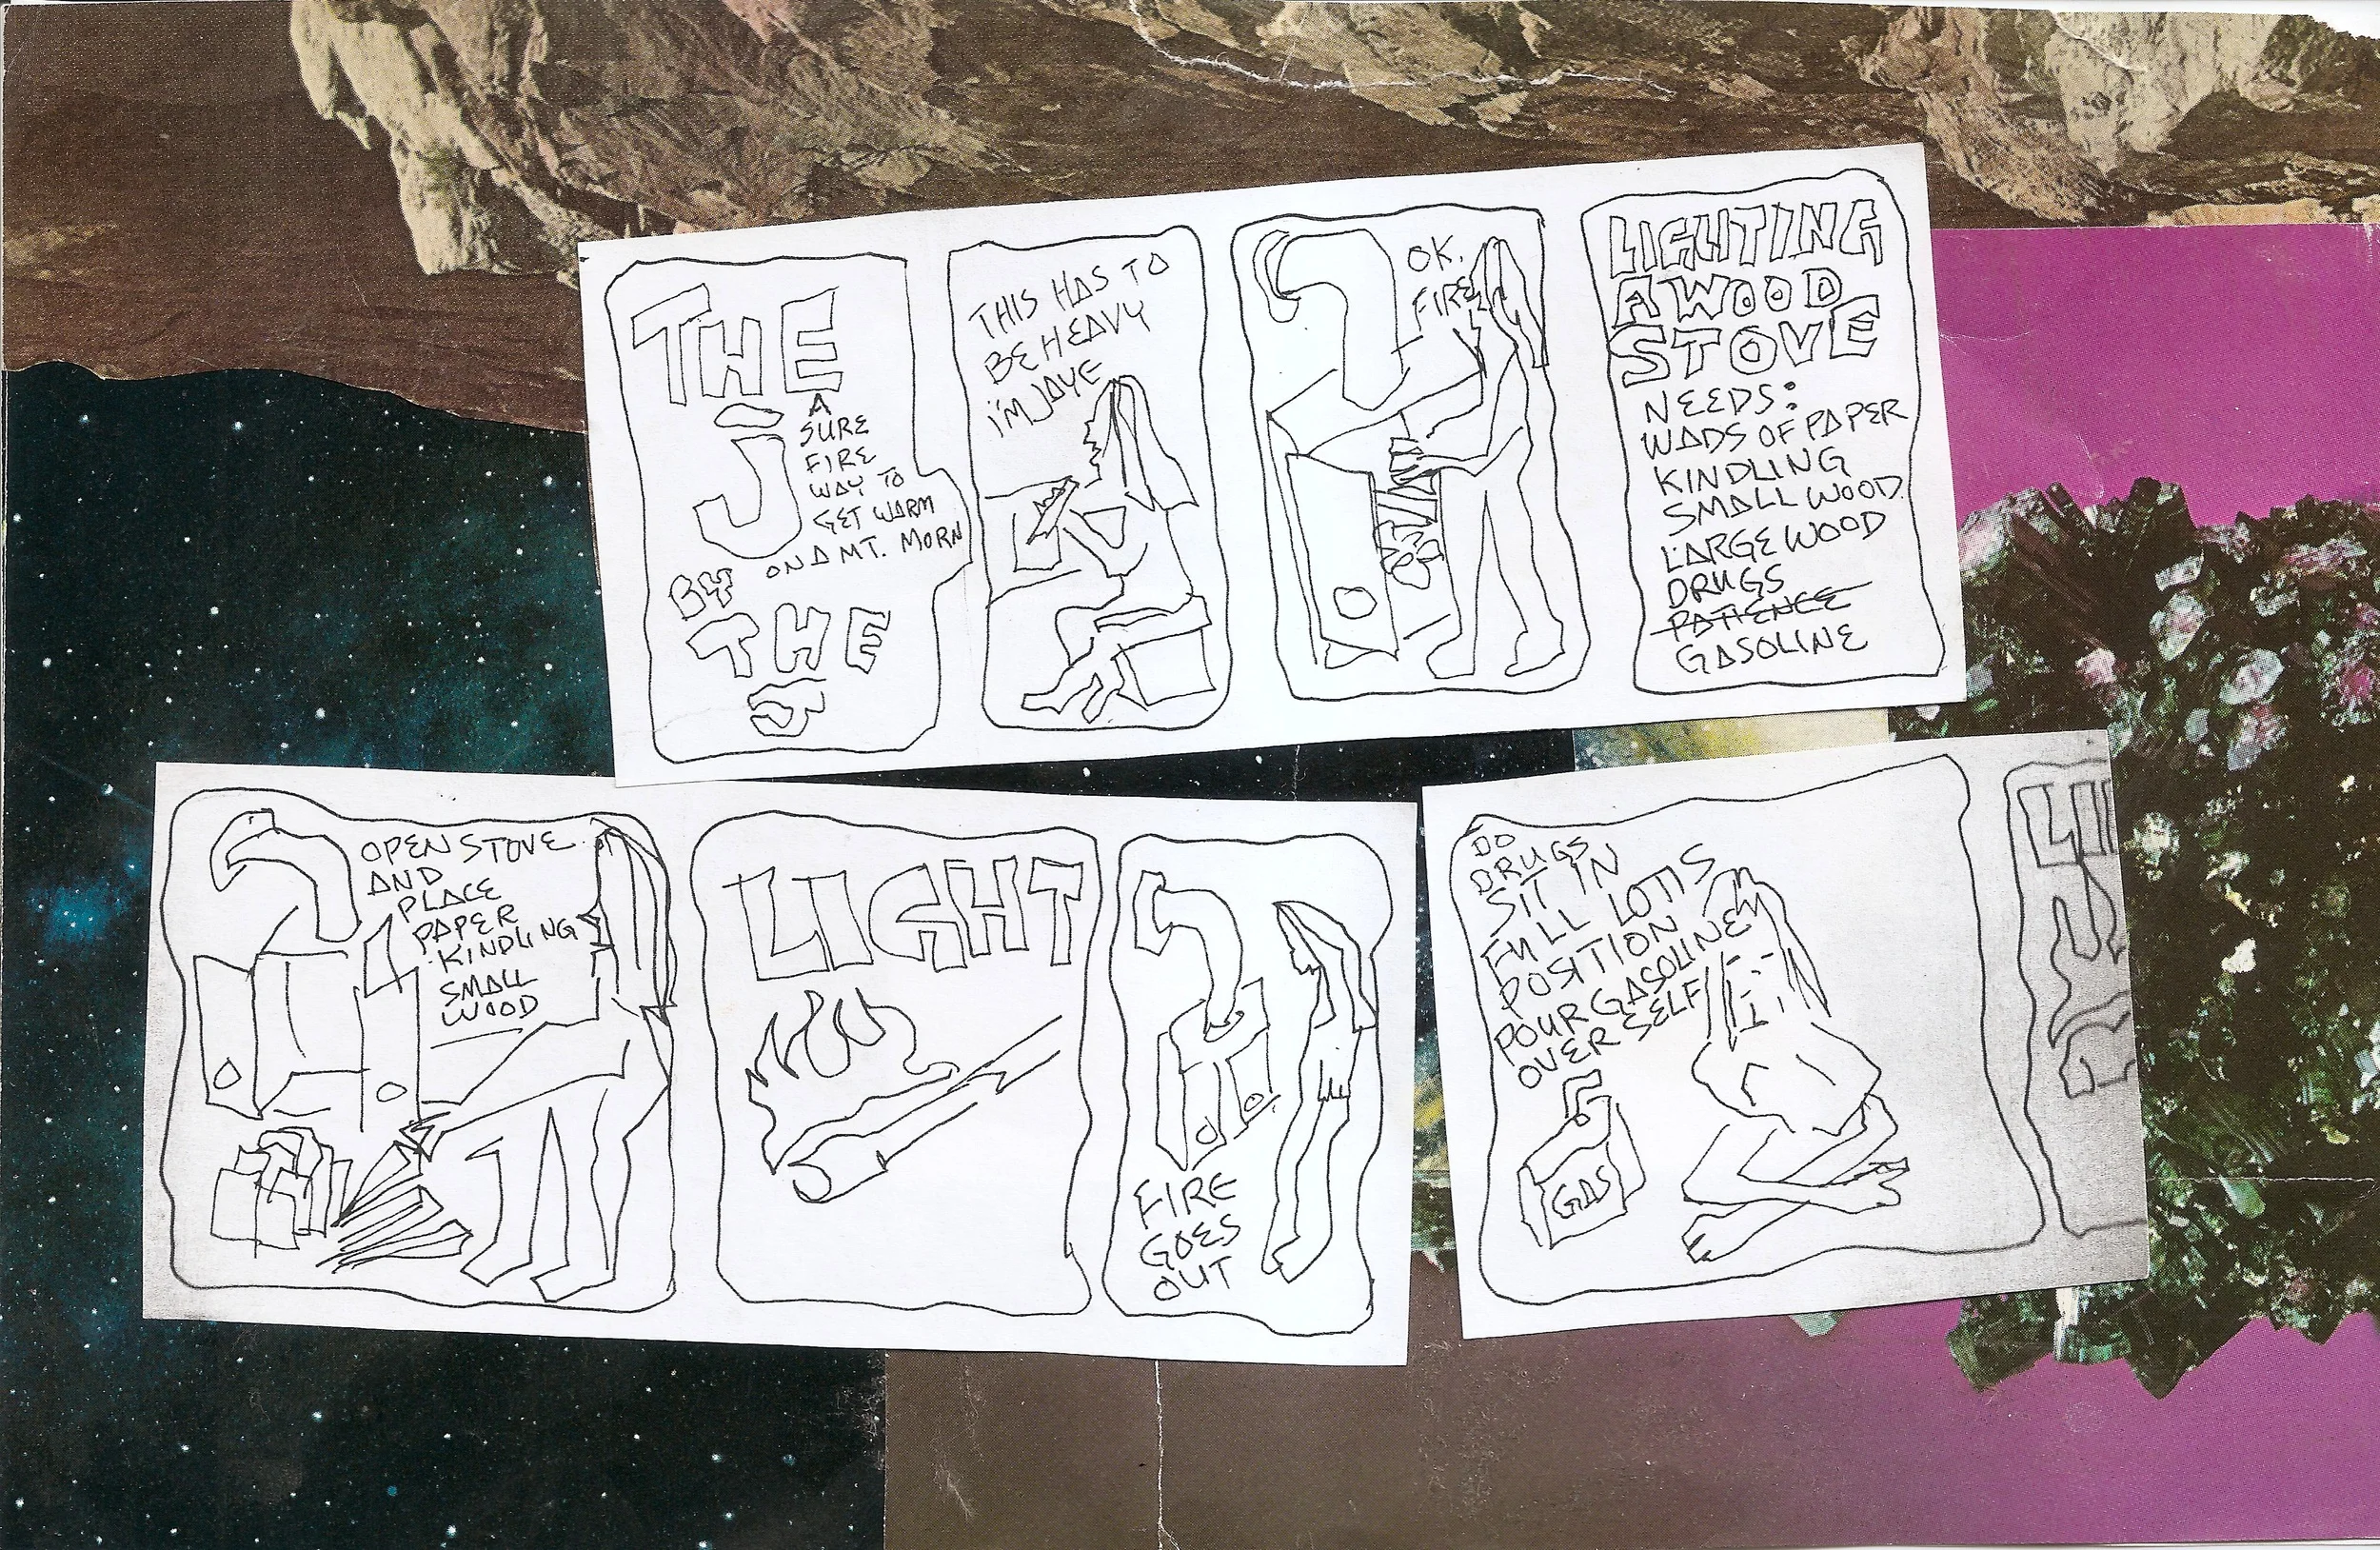 THE
J
A
SURE
FIRE
WAY TO
GET WARM
ON A MT. MORN
BY
THE
J
THIS HAS TO
BE HEAVY
I'M JOYE
OK.
FIRE
LIGHTING
A WOOD
STOVE
NEEDS:
WADS OF PAPER
KINDLING
SMALL WOOD
LARGE WOOD
DRUGS
PATIENCE
GASOLINE
OPEN STOVE
AND
PLACE
PAPER
KINDLING
SMALL
WOOD
LIGHT
FIRE
GOES
OUT
DO
DRUGS
SIT IN
FULL LOTIS
POSITION
POUR GASOLINE
OVER SELF
GAS